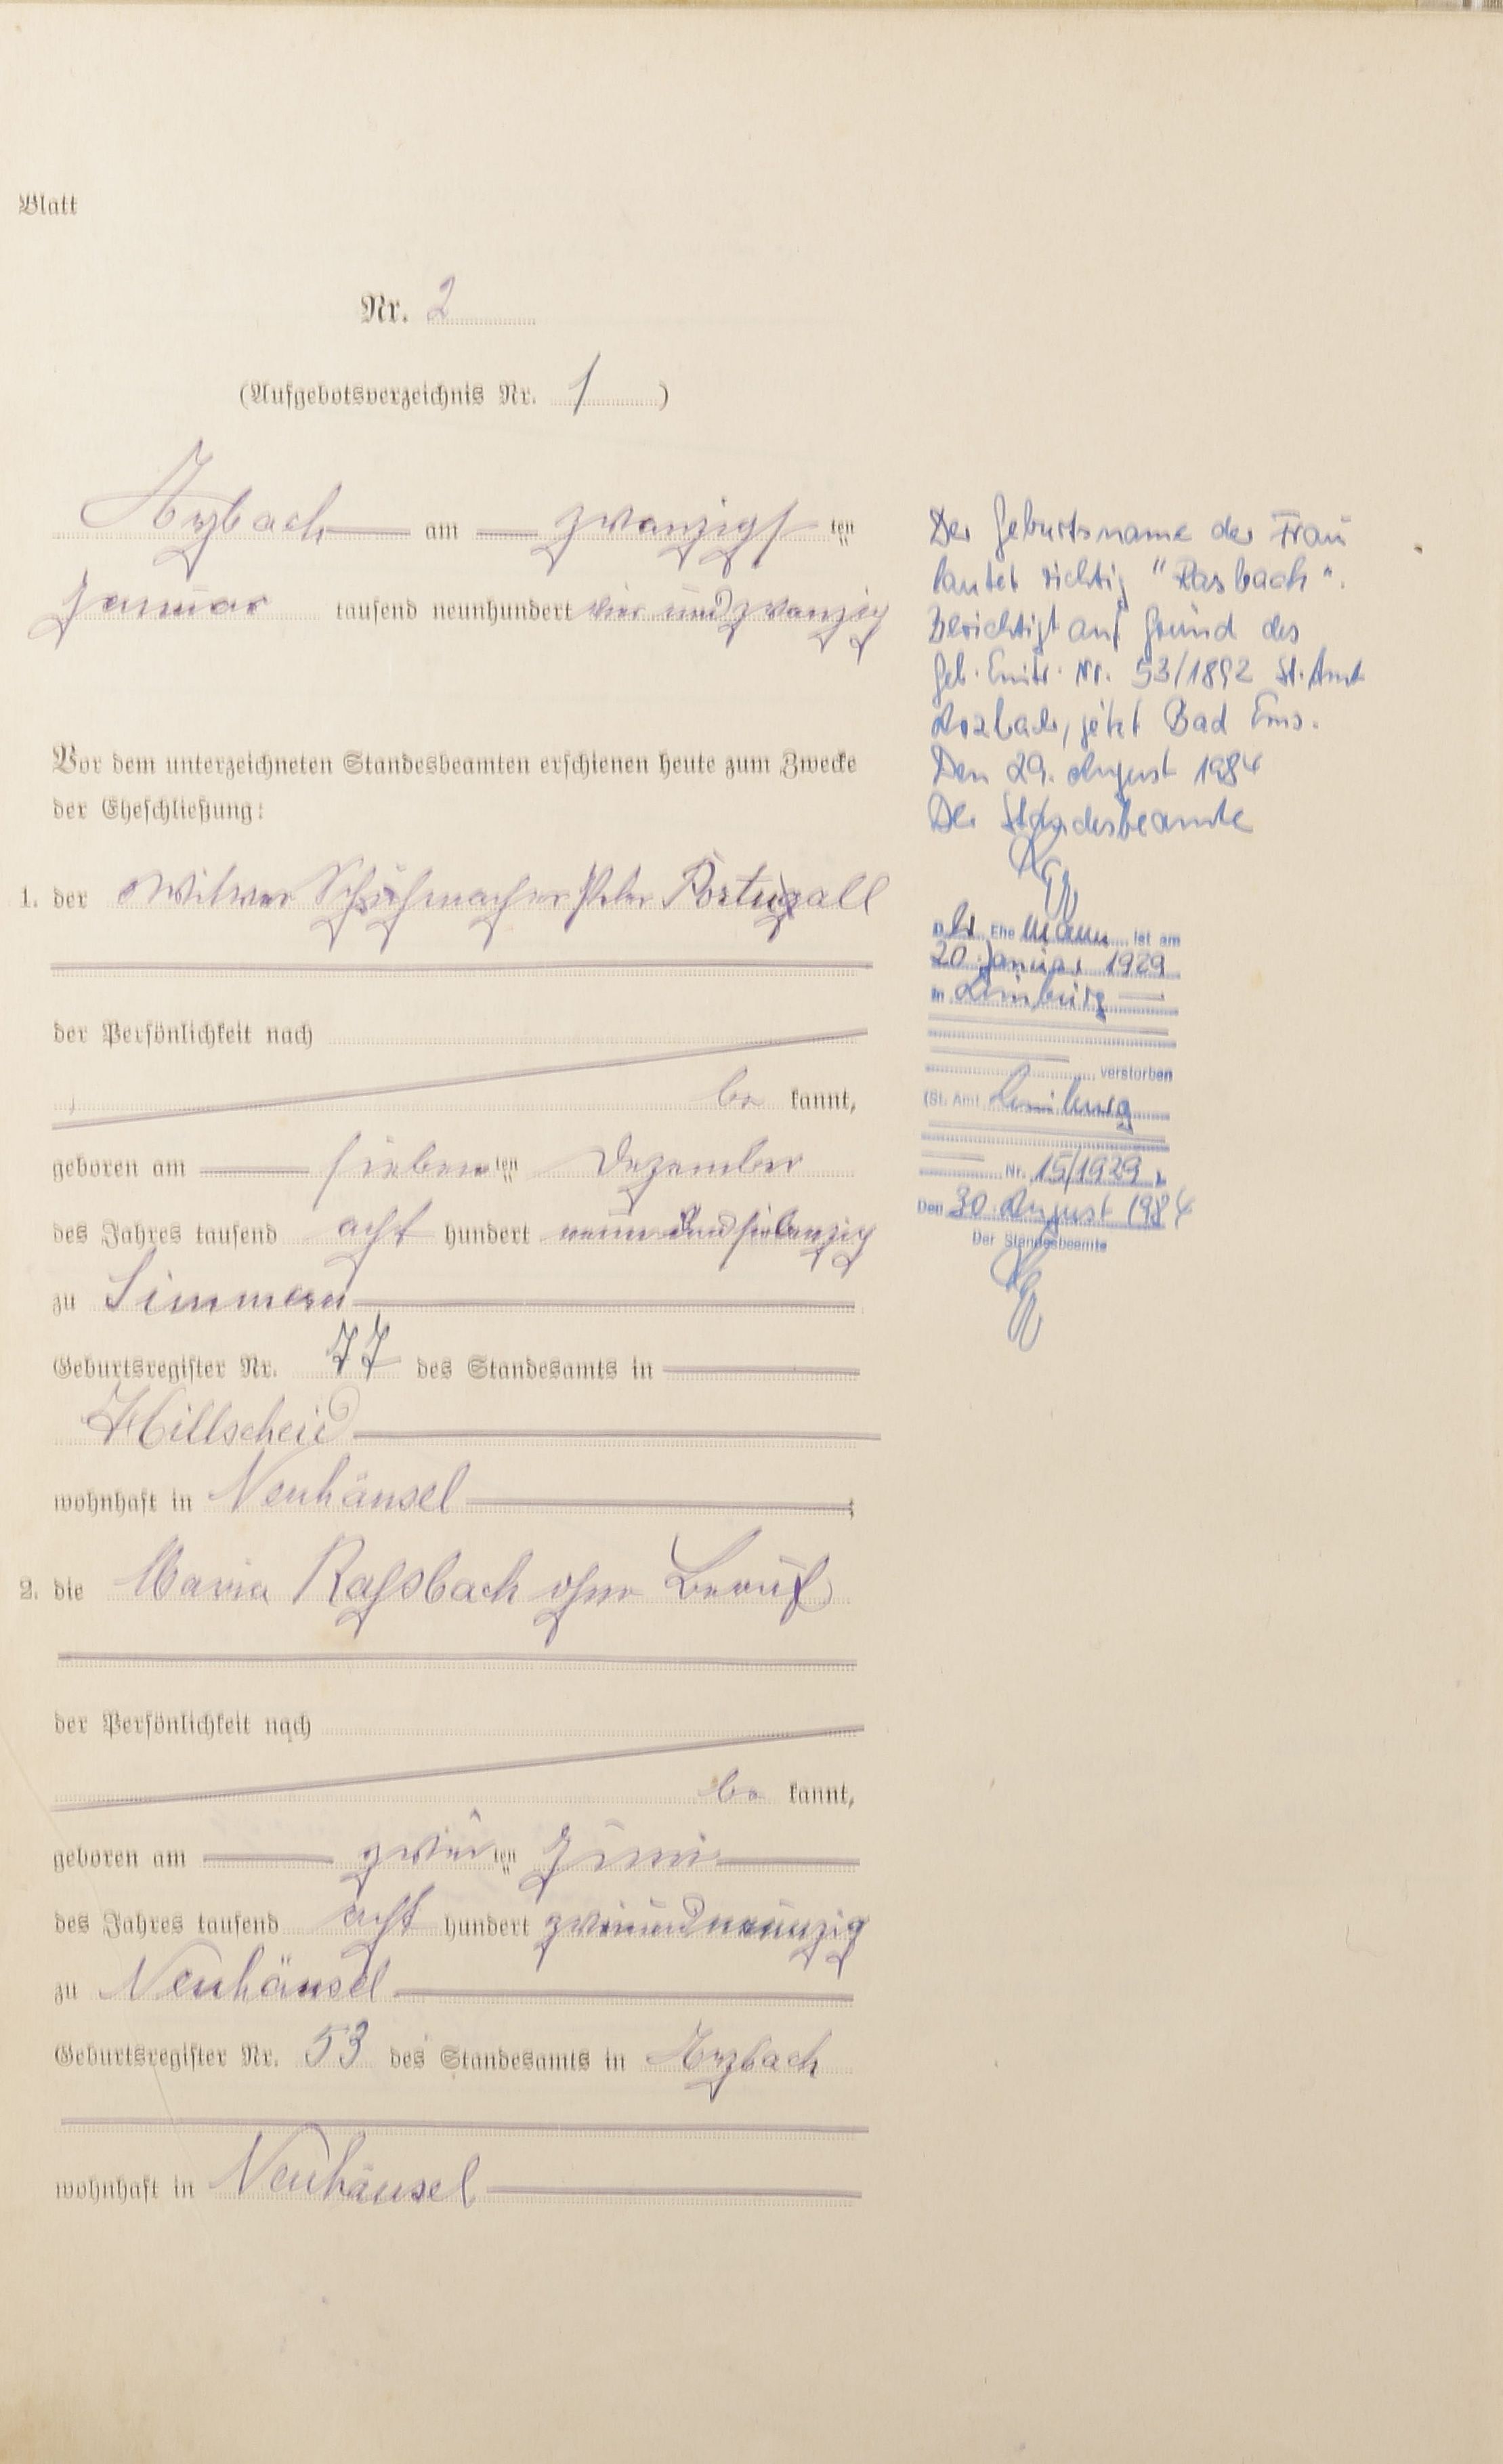 Blatt
Nr. 2
(Aufgebotsverzeichnis Nr. 1)
Arzbach am zwanzigsten
Januar tausend neunhundert vier und zwanzig
Vor dem unterzeichneten Standesbeamten erschienen heute zum Zwecke
der Eheschließung:
1. der Witwer Schuhmacher Peter Portugall
der Persönlichkeit nach
be kannt,
geboren am siebenten Dezember
des Jahres tausend acht hundert neun und siebenzig
zu Simmern
Geburtsregister Nr. 77 des Standesamts in
Hillscheid
wohnhaft in Neuhäusel
2. die Maria Raßbach ohne Beruf
der Persönlichkeit nach
be kannt,
geboren am zweiten Juni
des Jahres tausend acht hundert zweiundneunzig
zu Neuhäusel
Geburtsregister Nr. 53 des Standesamts in Arzbach
wohnhaft in Neuhäusel
Der Geburtsname der Frau
lautet richtig "Rasbach".
Berichtigt auf Grund des
Geb. Eintr. Nr. 53/1892 St. Amt
Arzbach, jetzt Bad Ems.
Den 29. August 1984
Der Standesbeamte
Der Ehe Mann ist am
20. Januar 1929
in Limburg
verstorben
(St. Amt Limburg
Nr. 15/1929)
Den 30. August 1984
Der Standesbeamte